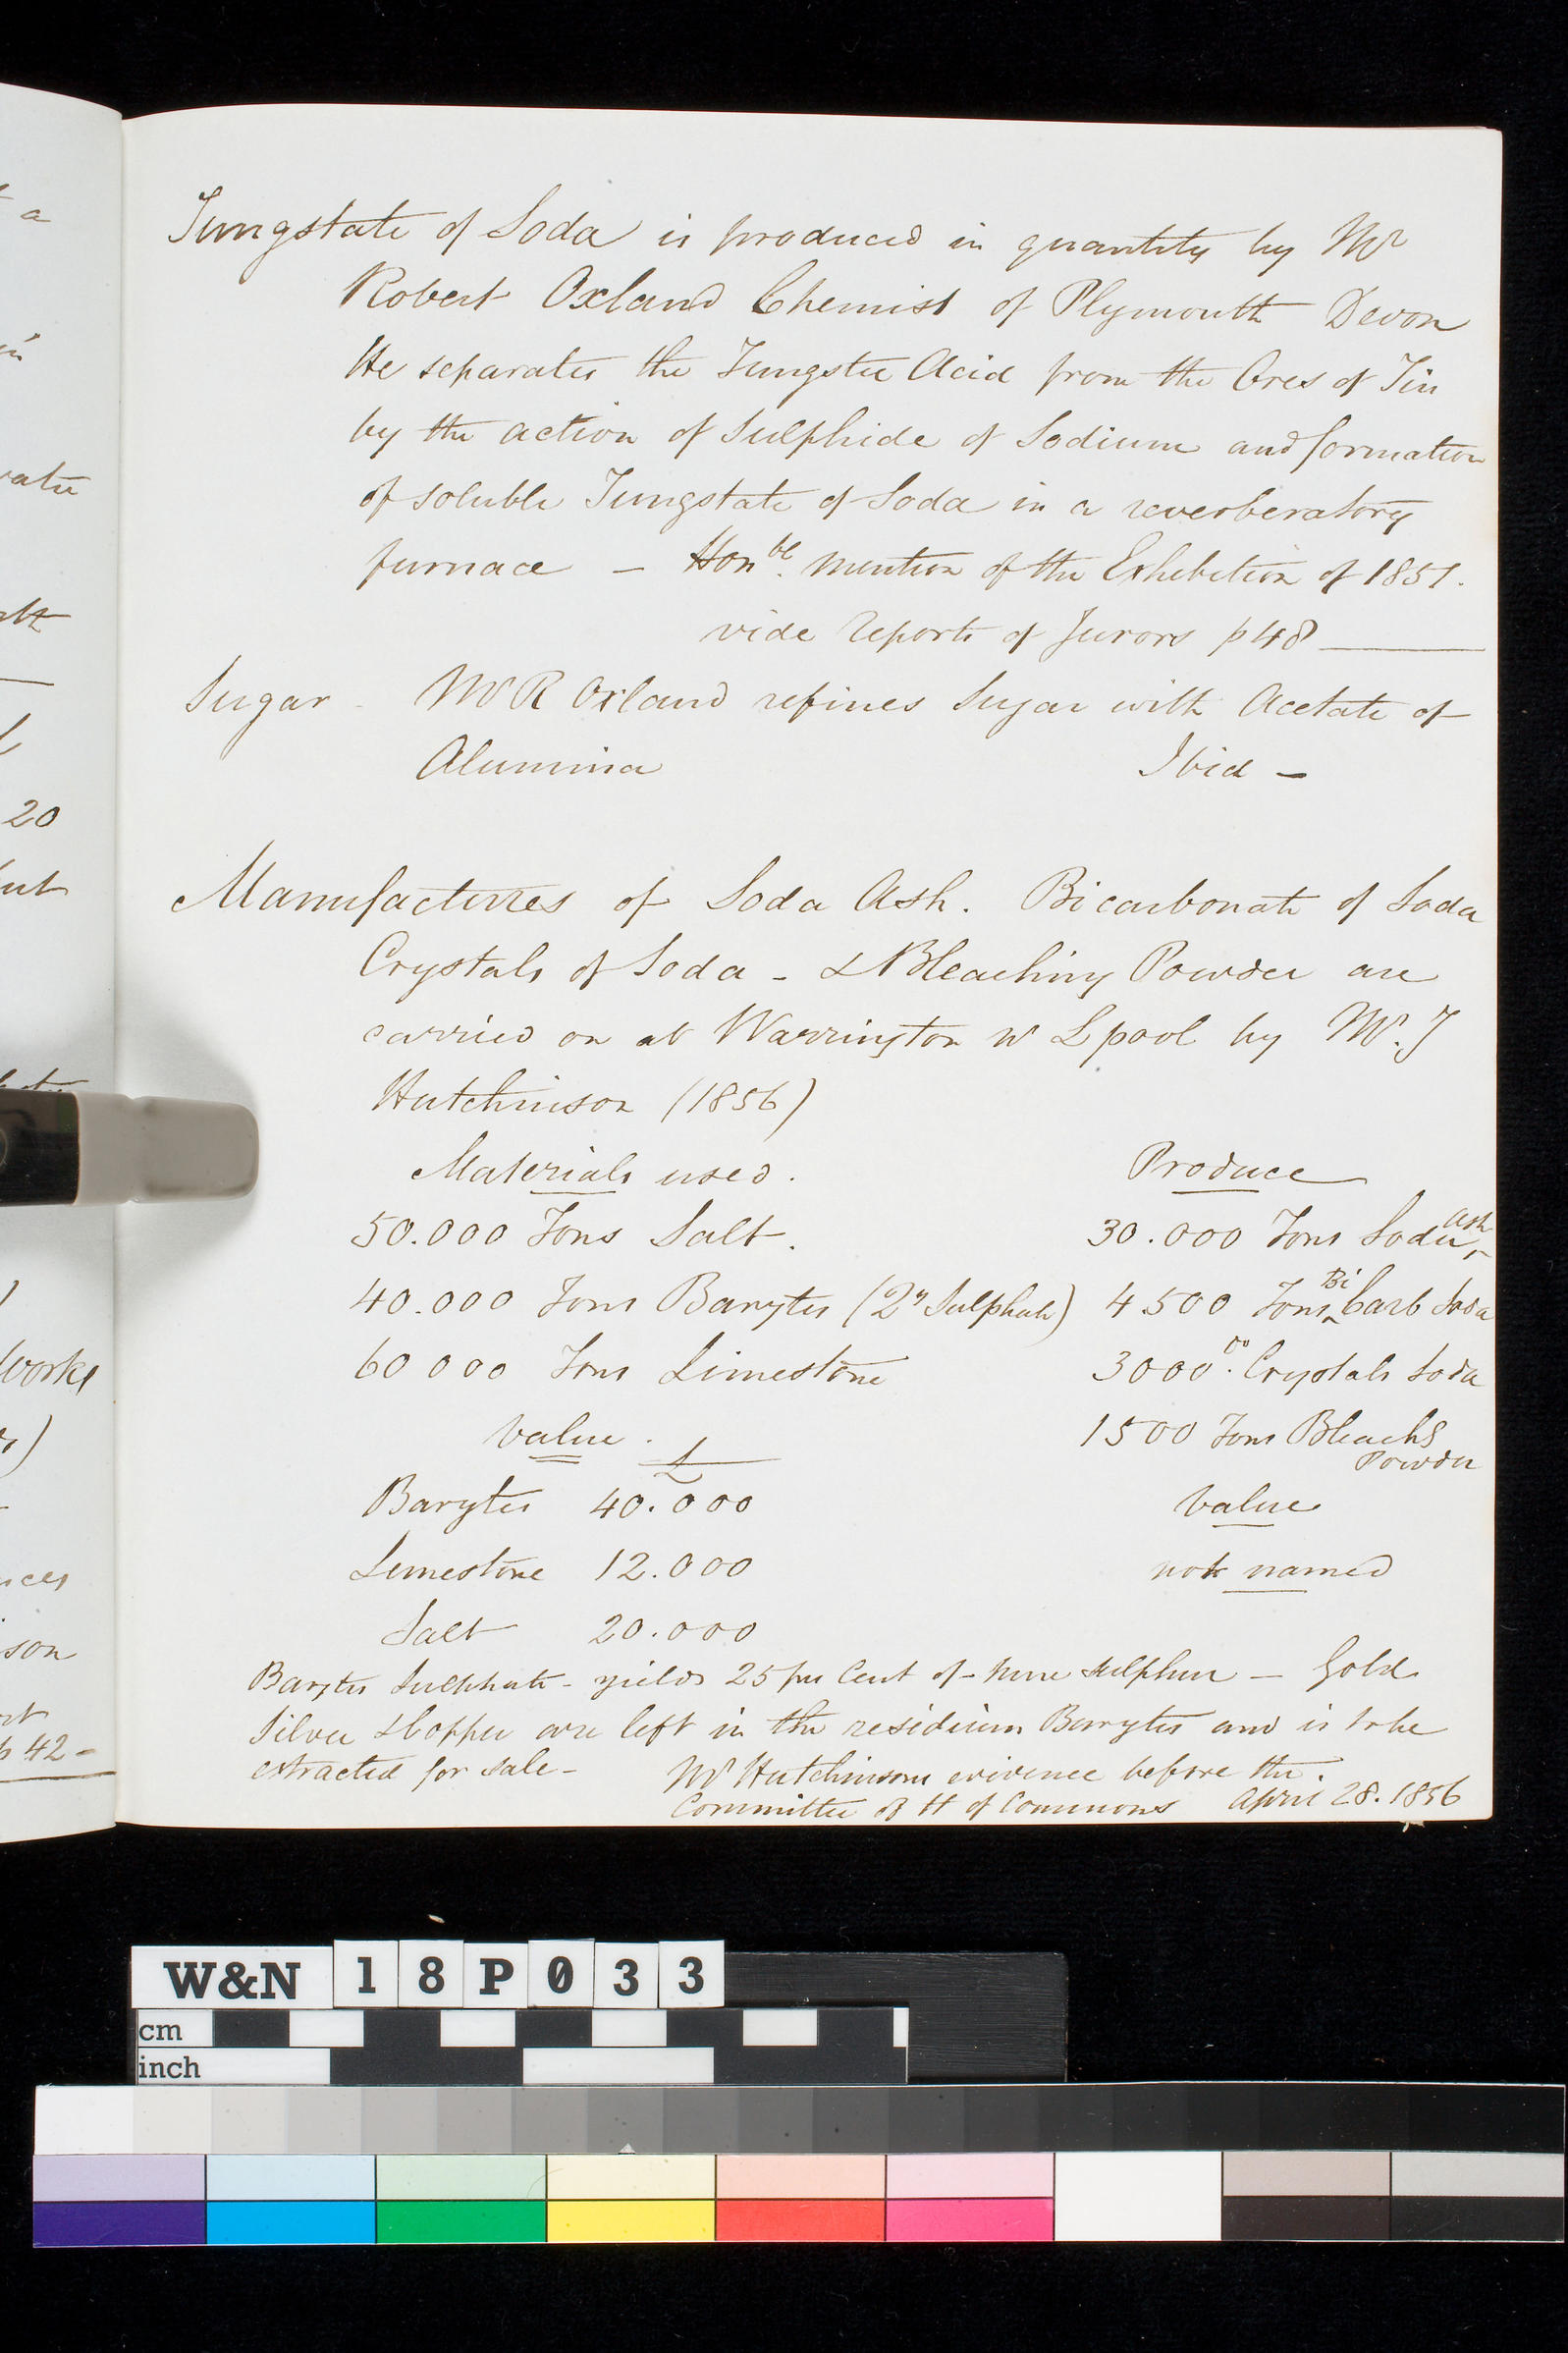 Tungstate of Soda is produced in quantity by Mr
Robert Oxland Chemist of Plymouth Devon
He separates the Tungstic Acid from the Ores of Tin
by the action of Sulphide of Sodium and formation
of soluble Tungstate of Soda in a reverberatory
furnace – Honble. mention of the Exhibition of 1851.
vide reports of Jurors p 48
Sugar - Mr R Oxland refines Sugar with Acetate of
Alumina Ibid –
Manufactures of Soda Ash. Bicarbonate of Soda
Crystals of Soda - & Bleaching Powder are
carried on at Warrington nr Lpool by Mr. J
Hutchinson (1856)
Materials used. Produce
50.000 Tons Salt. 30.000 Tons Soda Ash
40.000 Tons Barytes (2y Sulphate) 4500 Tons Bi Carb Soda
60000 Tons Limestone 3000 Do. Crystals Soda
value. £ 1500 Tons Bleachg
Powder
Barytes 40.000 Value
Limestone 12.000 not named
Salt 20.000
Barytes Sulphate - yields 25 per Cent of - pure sulphur – Gold
Silver & Copper are left in the residium Barytes and is to be
extracted for sale - Mr Hutchinsons evidence before the
Committee of H of Commons April 28. 1856
a
in
vate
20
but
Works
nces
son
p 42 -
W&N 18P033
cm
inch